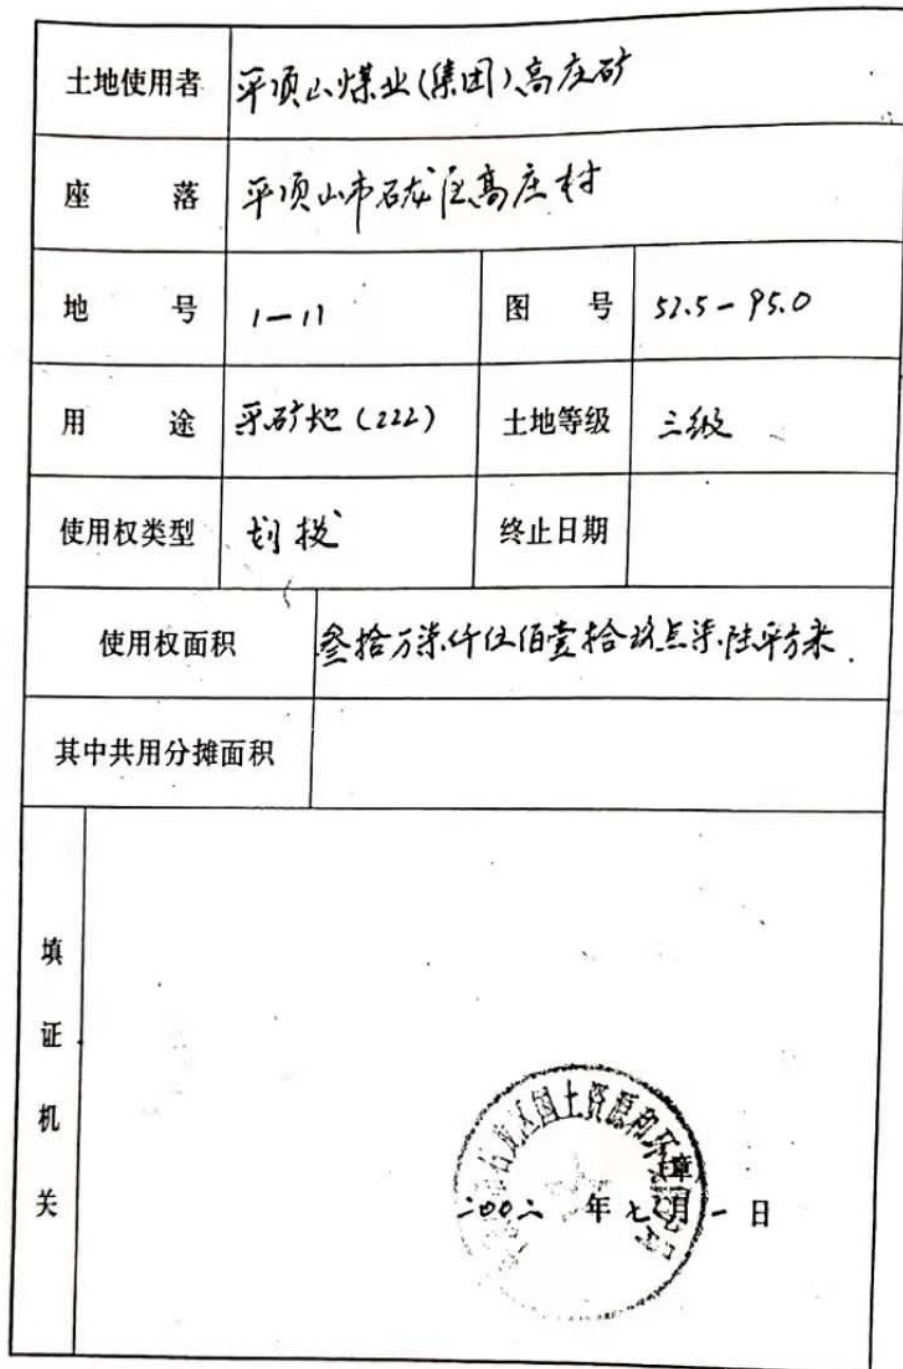 土地使用者 平顶山煤业(集团)高庄矿
座 落 平顶山市石龙区高庄村
地 号 1-11 图 号 52.5-95.0
用 途 采矿地(222) 土地等级 三级
使用权类型 划拨 终止日期
使用权面积 叁拾万柒仟伍佰壹拾玖点柒陆平方米.
其中共用分摊面积
填证机关
石龙区国土资源和环
(章)
二00二 年 七 月 一 日